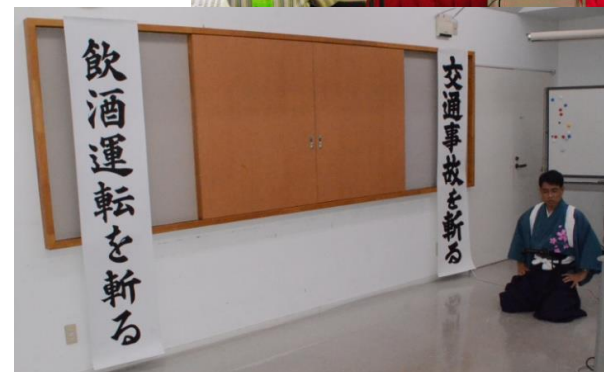 飲酒運転を斬る
交通事故を斬る